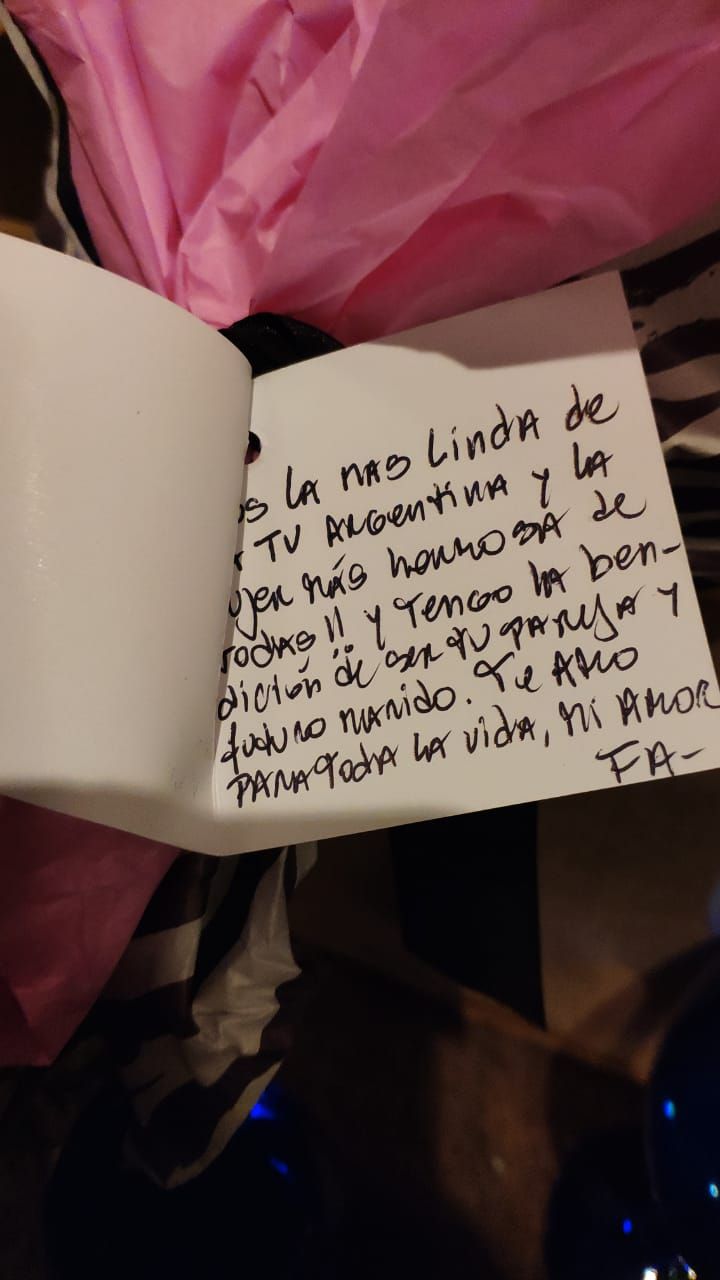 os LA MAS Linda de
r TV ARGENTINA y LA
ujer más hermosa de
rodas !! y Tengo LA ben-
dición de ser tu pareja y
futuro marido. Te AMO
PARA Toda LA vida, Mi AMOR
FA-